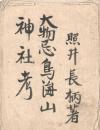 照井長柄著
大物忌鳥海山
神社考